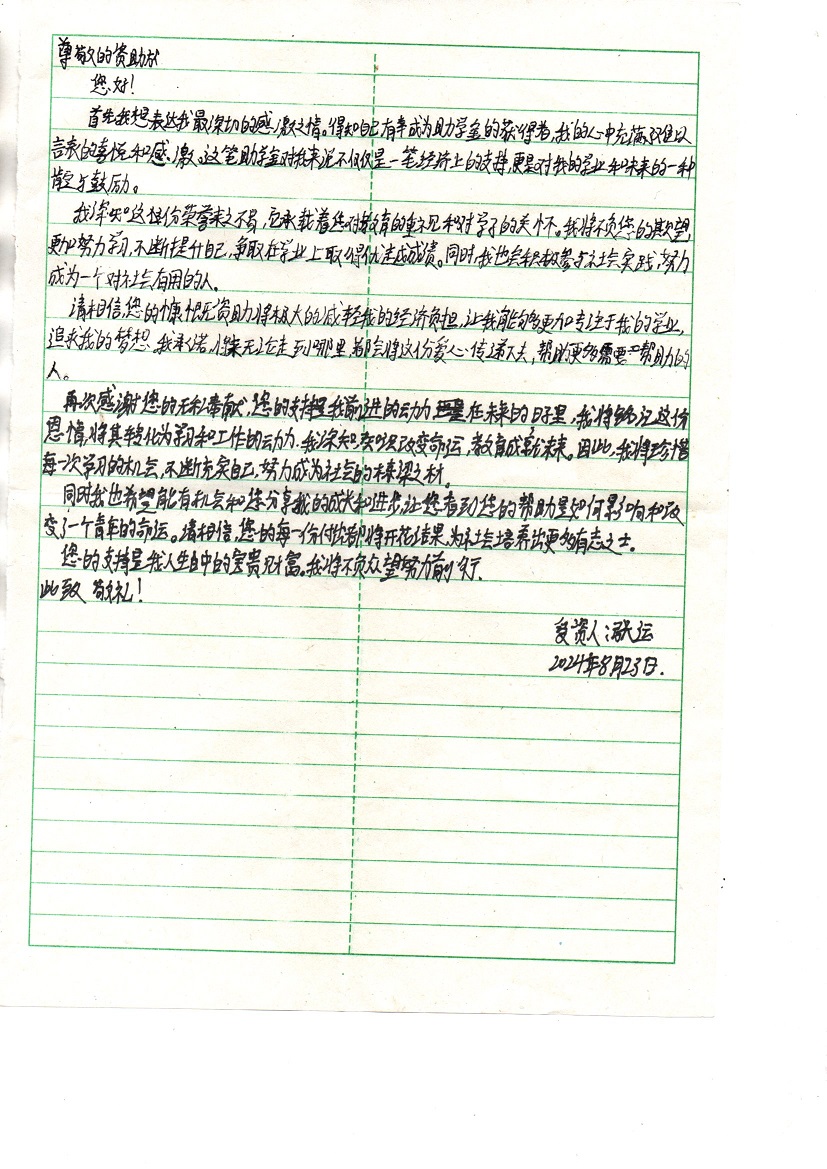 尊敬的资助人
您好!
首先我想表达我最深切的感激之情。得知自己有幸成为助学金的获得者,我的心中充满了难以
言表的喜悦和感激。这笔助学金对我来说不仅仅是一笔经济上的支持,更是对我的学业和未来的一种
肯定与鼓励。
我深知这份荣誉来之不易,它承载着您对教育的重视和对学子的关怀。我将不负您的期望,
更加努力学习,不断提升自己,争取在学业上取得优速成成绩。同时,我也会积极参与社会实践,努力
成为一个对社会有用的人。
请相信,您的慷慨资助将极大的减轻我的经济负担,让我能够更加专注于我的学业,
追求我的梦想。我承诺,将来无论走到哪里,都会将这份爱心传递下去,帮助更多需要帮助的
人。
再次感谢您的无私奉献,您的支持是我前进的动力 在未来的日子里,我将铭记这份
恩情,将其转化为学习和工作的动力。我深知,知识改变命运,教育成就未来。因此,我将珍惜
每一次学习的机会,不断充实自己,努力成为社会的未来梁之材。
同时我也希望能有机会和您分享我的成长和进步,让您看到您的帮助是如何影响和改
变了一个青年的命运。请相信,您的每一份付出都将开花结果,为社会培养出更多有志之士。
您的支持是我人生自中的宝贵财富。我将不负众望努力前行.
此致 敬礼!
受资人:张运
2024年8月23日.